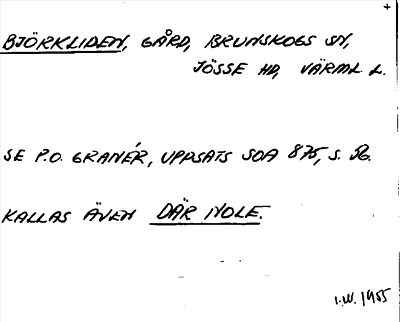 +
BJÖRKLIDEN, GÅRD, BRUNSKOGS SN,
JÖSSE HD, VÄRML L.
SE P.O. GRANÉR, UPPSATS SOA 875, S. 56.
KALLAS ÄVEN DÄR NOLE.
I.W. 1955